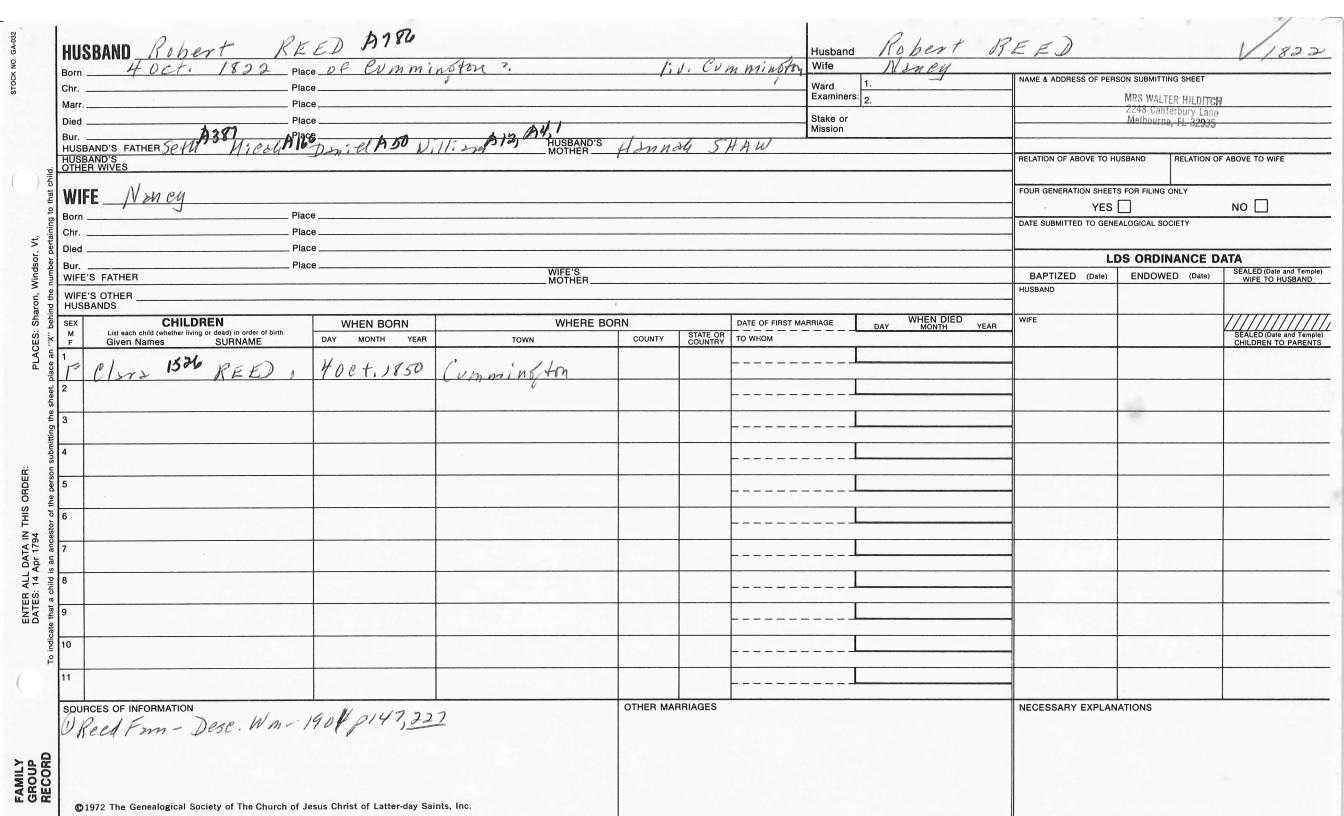 STOCK NO. GA-032
HUSBAND Robert REED A786
Born 4 Oct. 1822 Place of Cummington ?. liv. Cummington
Chr. Place
Marr. Place
Died Place
Bur. Place
HUSBAND'S FATHER Seth A387 Micah A168 Daniel A50 William A12, A4, 1 HUSBAND'S MOTHER Hannah SHAW
HUSBAND'S OTHER WIVES
Husband Robert REED √1822
Wife Nancy
Ward Examiners: 1.
2.
Stake or Mission
NAME & ADDRESS OF PERSON SUBMITTING SHEET
MRS WALTER HILDITCH
2248 Canterbury Lane
Melbourne, FL 32935
RELATION OF ABOVE TO HUSBAND RELATION OF ABOVE TO WIFE
FOUR GENERATION SHEETS FOR FILING ONLY
YES NO
DATE SUBMITTED TO GENEALOGICAL SOCIETY
WIFE Nancy
Born Place
Chr. Place
Died Place
Bur. Place
WIFE'S FATHER WIFE'S MOTHER
WIFE'S OTHER HUSBANDS
LDS ORDINANCE DATA
BAPTIZED (Date) ENDOWED (Date) SEALED (Date and Temple) WIFE TO HUSBAND
HUSBAND
WIFE
SEALED (Date and Temple) CHILDREN TO PARENTS
SEX M F
CHILDREN
List each child (whether living or dead) in order of birth
Given Names SURNAME
WHEN BORN
DAY MONTH YEAR
WHERE BORN
TOWN COUNTY STATE OR COUNTRY
DATE OF FIRST MARRIAGE
TO WHOM
WHEN DIED
DAY MONTH YEAR
1 F Clara 1526 REED, 4 Oct. 1850 Cummington
2
3
4
5
6
7
8
9
10
11
SOURCES OF INFORMATION
① Reed Fam - Desc. Wm - 1904 p147, 227
OTHER MARRIAGES
NECESSARY EXPLANATIONS
©1972 The Genealogical Society of The Church of Jesus Christ of Latter-day Saints, Inc.
PLACES: Sharon, Windsor, Vt.
To indicate that a child is an ancestor of the person submitting the sheet, place an "X" behind the number pertaining to that child.
ENTER ALL DATA IN THIS ORDER:
DATES: 14 Apr 1794
FAMILY GROUP RECORD